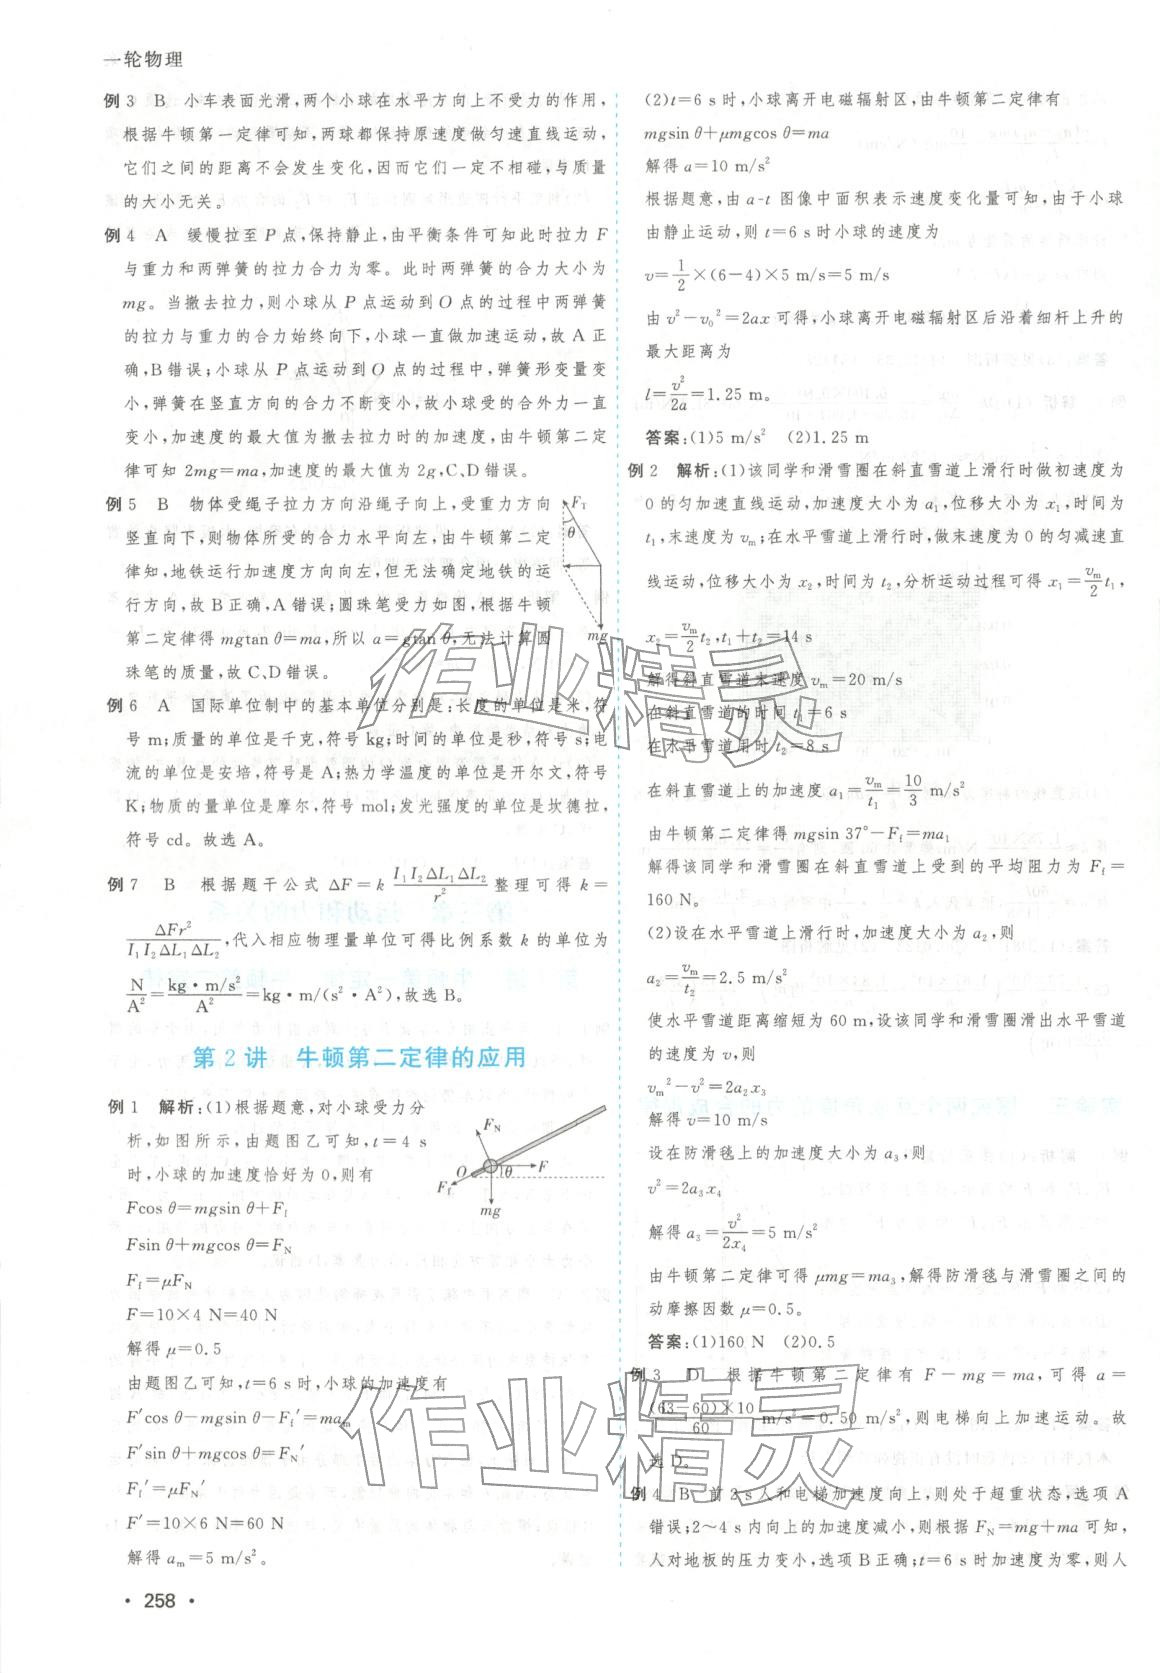 一轮物理
例 3　B　小车表面光滑,两个小球在水平方向上不受力的作用,
根据牛顿第一定律可知,两球都保持原速度做匀速直线运动,
它们之间的距离不会发生变化,因而它们一定不相碰,与质量
的大小无关。
例 4　A　缓慢拉至 P 点,保持静止,由平衡条件可知此时拉力 F
与重力和两弹簧的拉力合力为零。此时两弹簧的合力大小为
mg。当撤去拉力,则小球从 P 点运动到 O 点的过程中两弹簧
的拉力与重力的合力始终向下,小球一直做加速运动,故 A 正
确,B错误;小球从 P 点运动到O点的过程中,弹簧形变量变
小,弹簧在竖直方向的合力不断变小,故小球受的合外力一直
变小,加速度的最大值为撤去拉力时的加速度,由牛顿第二定
律可知 2mg=ma,加速度的最大值为 2g,C、D 错误。
例 5　B　物体受绳子拉力方向沿绳子向上,受重力方向
竖直向下,则物体所受的合力水平向左,由牛顿第二定
律知,地铁运行加速度方向向左,但无法确定地铁的运
行方向,故 B 正确,A 错误;圆珠笔受力如图,根据牛顿
第二定律得 mgtan θ=ma,所以 a=gtan θ,无法计算圆
珠笔的质量,故 C、D 错误。
F_T
θ
mg
例 6　A　国际单位制中的基本单位分别是:长度的单位是米,符
号 m;质量的单位是千克,符号 kg;时间的单位是秒,符号 s;电
流的单位是安培,符号是 A;热力学温度的单位是开尔文,符号
K;物质的量单位是摩尔,符号 mol;发光强度的单位是坎德拉,
符号 cd。故选 A。
例 7　B　根据题干公式 ΔF=k I₁I₂ΔL₁ΔL₂/r² 整理可得 k=
ΔFr²/I₁I₂ΔL₁ΔL₂,代入相应物理量单位可得比例系数 k 的单位为
N/A²=kg·m/s²/A²=kg·m/(s²·A²),故选 B。
第 2 讲　牛顿第二定律的应用
例 1　解析:(1)根据题意,对小球受力分
析,如图所示,由题图乙可知,t=4 s
时,小球的加速度恰好为 0,则有
Fcos θ=mgsin θ+F_f
Fsin θ+mgcos θ=F_N
F_f=μF_N
F=10×4 N=40 N
解得 μ=0.5
由题图乙可知,t=6 s 时,小球的加速度有
F′cos θ-mgsin θ-F_f′=ma_m
F′sin θ+mgcos θ=F_N′
F_f′=μF_N′
F′=10×6 N=60 N
解得 a_m=5 m/s²。
F_N
O
θ
F
F_f
mg
(2)t=6 s 时,小球离开电磁辐射区,由牛顿第二定律有
mgsin θ+μmgcos θ=ma
解得 a=10 m/s²
根据题意,由 a-t 图像中面积表示速度变化量可知,由于小球
由静止运动,则 t=6 s 时小球的速度为
v=1/2×(6-4)×5 m/s=5 m/s
由 v²-v₀²=2ax 可得,小球离开电磁辐射区后沿着细杆上升的
最大距离为
l=v²/2a=1.25 m。
答案:(1)5 m/s²　(2)1.25 m
例 2　解析:(1)该同学和滑雪圈在斜直雪道上滑行时做初速度为
0 的匀加速直线运动,加速度大小为 a₁,位移大小为 x₁,时间为
t₁,末速度为 v_m;在水平雪道上滑行时,做末速度为 0 的匀减速直
线运动,位移大小为 x₂,时间为 t₂,分析运动过程可得 x₁=v_m/2 t₁,
x₂=v_m/2 t₂,t₁+t₂=14 s
解得斜直雪道末速度 v_m=20 m/s
在斜直雪道的时间 t₁=6 s
在水平雪道用时 t₂=8 s
在斜直雪道上的加速度 a₁=v_m/t₁=10/3 m/s²
由牛顿第二定律得 mgsin 37°-F_f=ma₁
解得该同学和滑雪圈在斜直雪道上受到的平均阻力为 F_f=
160 N。
(2)设在水平雪道上滑行时,加速度大小为 a₂,则
a₂=v_m/t₂=2.5 m/s²
使水平雪道距离缩短为 60 m,设该同学和滑雪圈滑出水平雪道
的速度为 v,则
v_m²-v²=2a₂x₃
解得 v=10 m/s
设在防滑毯上的加速度大小为 a₃,则
v²=2a₃x₄
解得 a₃=v²/2x₄=5 m/s²
由牛顿第二定律可得 μmg=ma₃,解得防滑毯与滑雪圈之间的
动摩擦因数 μ=0.5。
答案:(1)160 N　(2)0.5
例 3　D　根据牛顿第二定律有 F-mg=ma,可得 a=
(63-60)×10/60 m/s²=0.50 m/s²,则电梯向上加速运动。故
选 D。
例 4　B　前 2 s 人和电梯加速度向上,则处于超重状态,选项 A
错误;2～4 s 内向上的加速度减小,则根据 F_N=mg+ma 可知,
人对地板的压力变小,选项 B 正确;t=6 s 时加速度为零,则人
作业精灵
作业精灵
· 258 ·